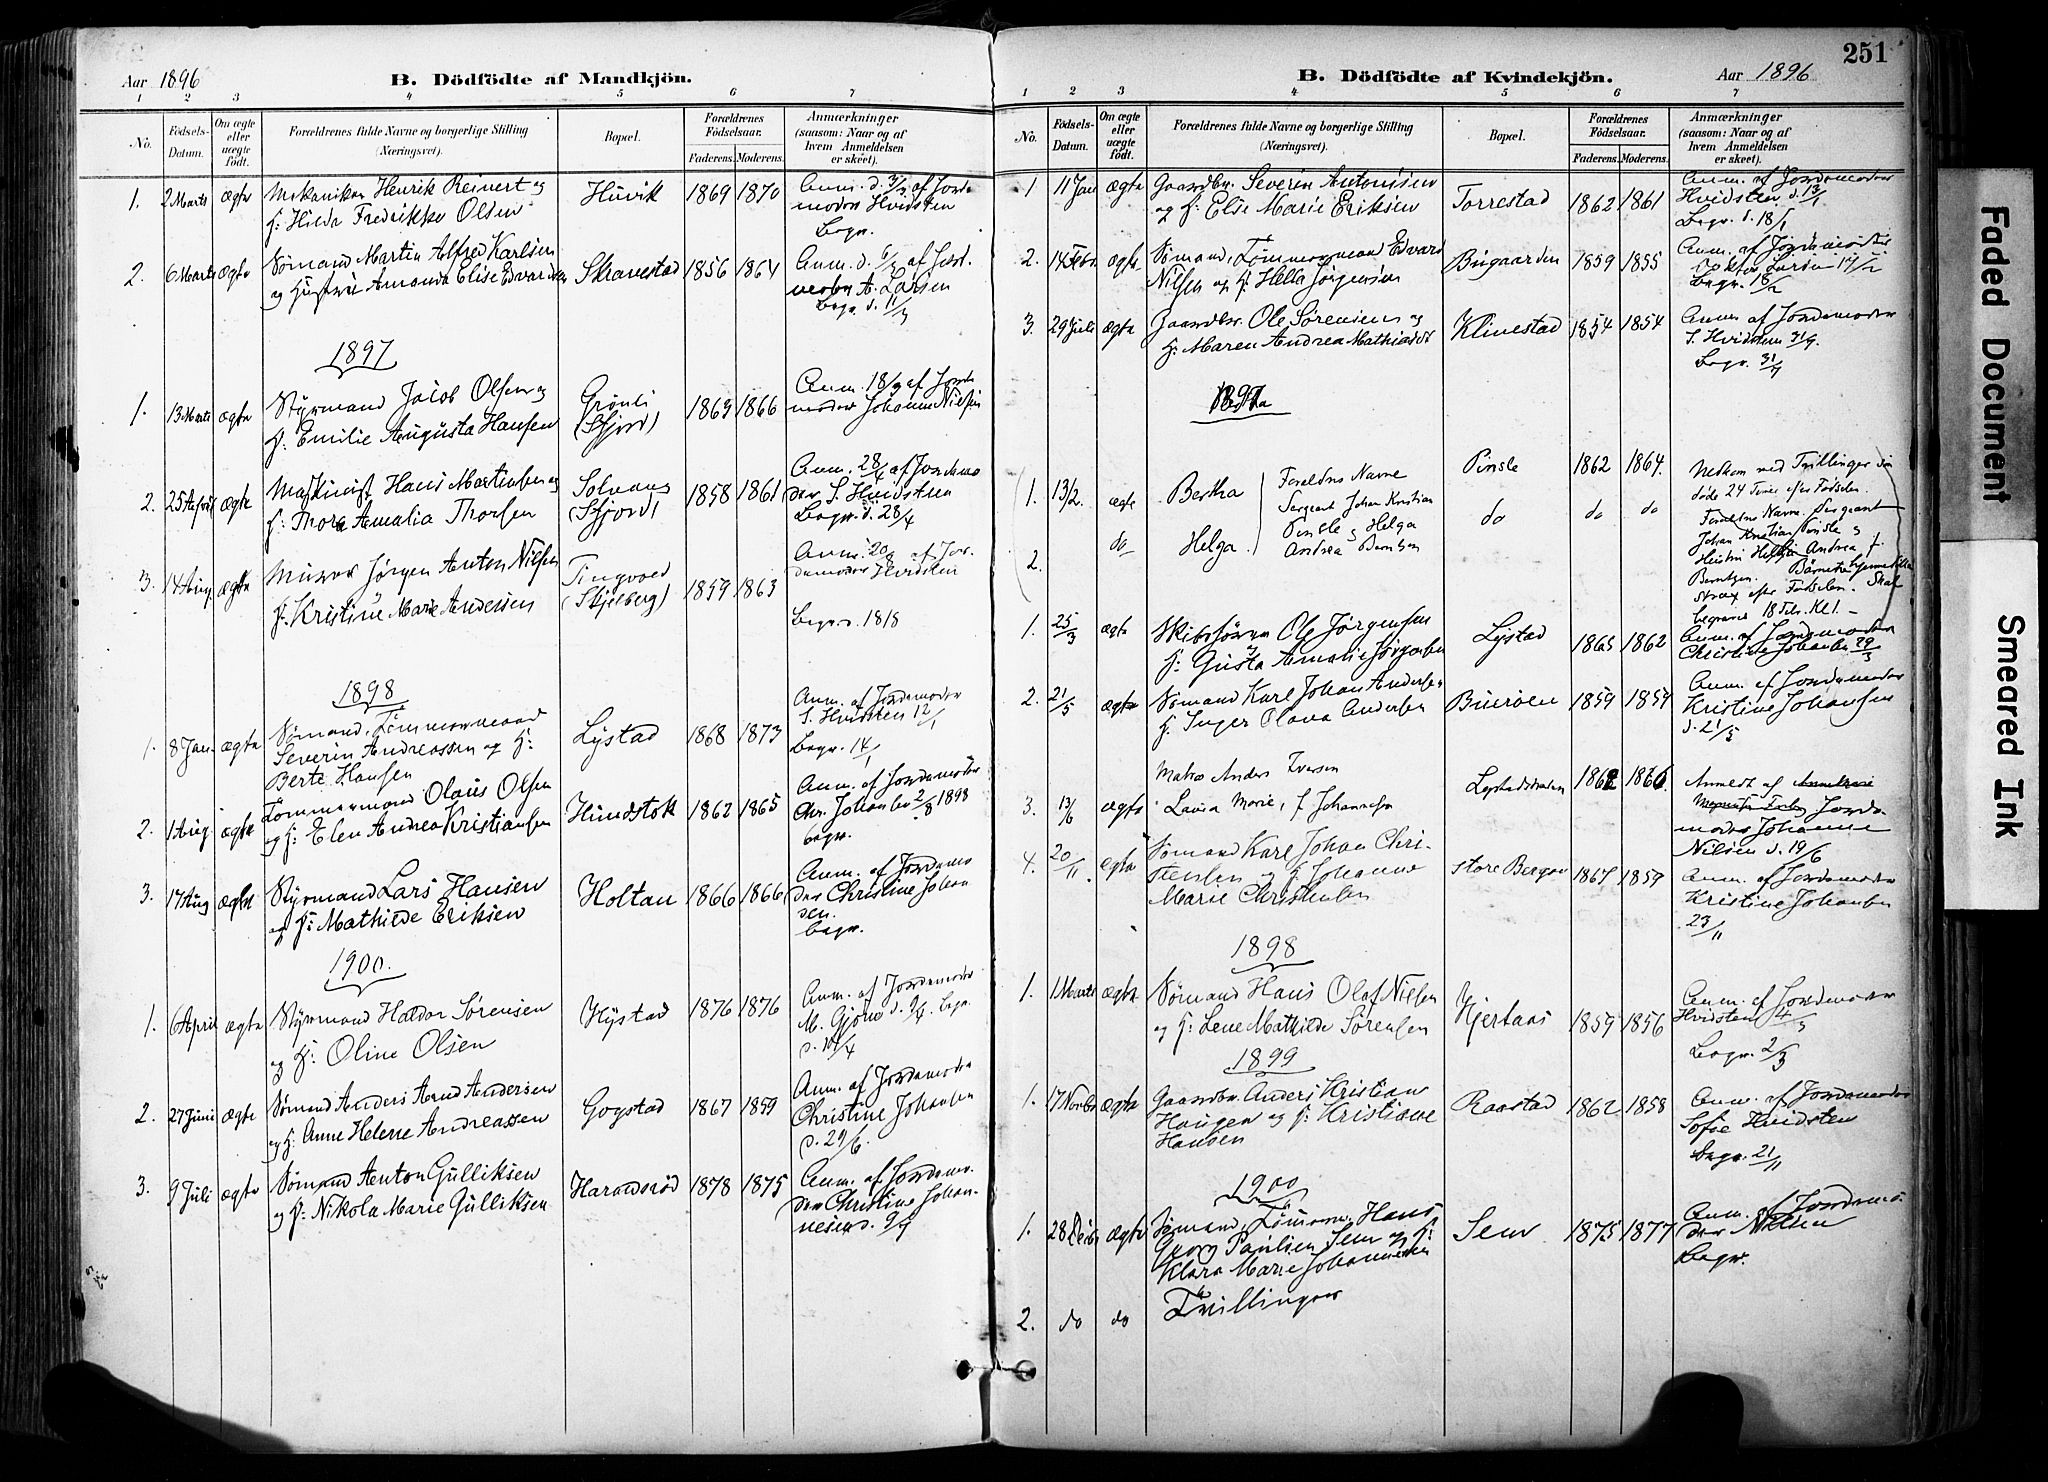 Aar 1896
B. Dödfödte af Mandkjön.
1 2 3 4 5 6 7
No.
Födsels-Datum.
Om ægte eller uægte födt.
Forældrenes fulde Navne og borgerlige Stilling
(Næringsvei).
Bopæl.
Forældrenes Födselsaar.
Faderens. Moderens.
Anmærkninger
(saasom: Naar og af
hvem Anmeldelsen
er skeet).
1. 2 Marts ægte Mekaniker Henrik Reinert og Huvik 1869 1870 Anm. d. 3/3 af Jorde
f: Hilda Fredrikke Olsen moder Hvidsten
Begr.
2. 6 Marts ægte Sømand Martin Alfred Karlsen Skravestad 1856 1864 Anm. d. 6/3 af Jord.
og Hustru Amanda Elise Edvardsen moder A. Larsen
Begr. d. 11/3
1897
1. 13 Marts ægte Styrmand Jacob Olsen og Grønli 1863 1866 Anm. 18/3 af Jorde
f. Emilie Augusta Hansen (Sfjord) moder Johanne Nilsen
2. 25 April ægte Maskinist Hans Martinsen og Solvang 1858 1861 Anm. 28/4 af Jordemo
f: Thora Amalia Thorsen (Sfjord) der S. Hvidsten
Begr. d. 28/4
3. 14 Aug. ægte Murer Jørgen Anton Nilsen Tingvold 1859 1863 Anm. 20/8 af Jor-
f. Kristine Marie Andersen (Skjelberg) demoder Hvidsten
Begr. d. 18/8
1898
1. 8 Jan. ægte Sømand, Tømmermand Lystad 1868 1873 Anm. af Jordemoder
Severin Andreassen og f: S. Hvidsten 12/1
Berte Hansen Begr. 14/1
2. 1 Aug. ægte Tømmermand Olaus Olsen Hundstok 1862 1865 Anm. af Jordemoder
og f: Elen Andrea Kristiansen Chr. Johansen 2/8 1898
begr.
3. 17 Aug ægte Styrmand Lars Hansen Holtan 1866 1866 Anm. af Jordemo
og f: Mathilde Eriksen der Christine Johan
sen.
begr.
1900.
1. 6 April ægte Styrmand Haldor Sørensen Hystad 1876 1876 Anm. af Jordemoder
og f: Oline Olsen M. Gjøno d. 9/4. Begr.
d. 10/4
2. 27 Juni ægte Sømand Anders Arnd Andersen Gogstad 1867 1859 Anm. af Jordemoder
og f: Anne Helene Andreassen Christine Johansen
d. 29/6.
3. 9 Juli ægte Sømand Anton Gulliksen Haraldsrød 1878 1875 Anm. af Jordemo-
og f: Nikola Marie Gulliksen der Christine Johan-
nesen d. 9/7
B. Dödfödte af Kvindekjön.
Aar 1896
251
1 2 3 4 5 6 7
No.
Födsels-Datum.
Om ægte eller uægte födt.
Forældrenes fulde Navne og borgerlige Stilling
(Næringsvei).
Bopæl.
Forældrenes Födselsaar.
Faderens. Moderens.
Anmærkninger
(saasom: Naar og af
hvem Anmeldelsen
er skeet).
1 11 Jan ægte Gaardbr. Severin Antonisen Torrestad 1862 1861 Anm. af Jordemoder
og f: Elise Marie Eriksen Hvidsten d. 13/1
Begr. d. 18/1
2. 14 Febr. ægte Sømand, Tømmermand Edvard Bugaarden 1859 1855 Anm. af Jordemoder
Nilsen og f: Hella Jørgensen Larsen 14/2
Begr. 18/2
3. 29 Juli ægte Gaardbr. Ole Sørensen og Klinestad 1854 1854 Anm. af Jordemoder
f: Maren Andrea Mathisdt S. Hvidsten 31/9.
Begr. 31/7
1897
1. 13/2. ægte Bertha Foreldres Navne Pinsle 1862 1864. Nedkom med Tvillinger
Sergeant Johan Kristian døde 24 Timer efter Fødselen.
2. do Helga Pinsle og Helga do do do Foreldres Navne. Sergeant
Andrea Berntsen Johan Kristian Pinsle og
Hustru Helga Andrea f.
Berntzen. Børnene
strax efter Fødselen. Skal
begraves 18 Feb. Kl 1. -
1. 25/3 ægte Skibsfører Ole Jørgensen Lystad 1865 1862 Anm. af Jordemoder
og f: Gusta Amalie Jørgensen Christine Johansen 29/3
2. 21/5 ægte Sømand Karl Johan Andersen Buerøen 1859 1859 Anm. af Jordemoder
f: Inger Olava Andersen Kristine Johansen
d. 21/5
3. 13/6 ægte Anders Iversen Lystadstranden 1862 1866. Anmeldt af
Laura Marie, f. Johannesen Jorde-
moder Johanne
Nilsen d. 19/6
4. 20/11 ægte Sømand Karl Johan Chri- Store Bergan 1867 1859 Anm. af Jordemoder
stensen og f: Johanne Kristine Johansen
Marie Christensen 23/11
1898
1. 1 Marts ægte Sømand Hans Olaf Nilsen Hjertaas 1859 1856 Anm. af Jordemoder
og f: Lene Mathilde Sørensen Hvidsten 4/3
Begr. 2/3
1899
1. 17 Novbr ægte Gaardbr. Anders Kristian Raastad 1862 1858 Anm. af Jordemoder
Haugen og f: Kristiane Sofie Hvidsten
Hansen Begr. 21/11
1900
1. 28 Decbr ægte Sømand, Tømrer, Hans Sem 1875 1877 Anm. af Jordemo-
Georg Paulsen Sem og f: der Nielsen
Klara Marie Johannesen Begr.
2. do do Tvillinger
Faded Document
Smeared Ink